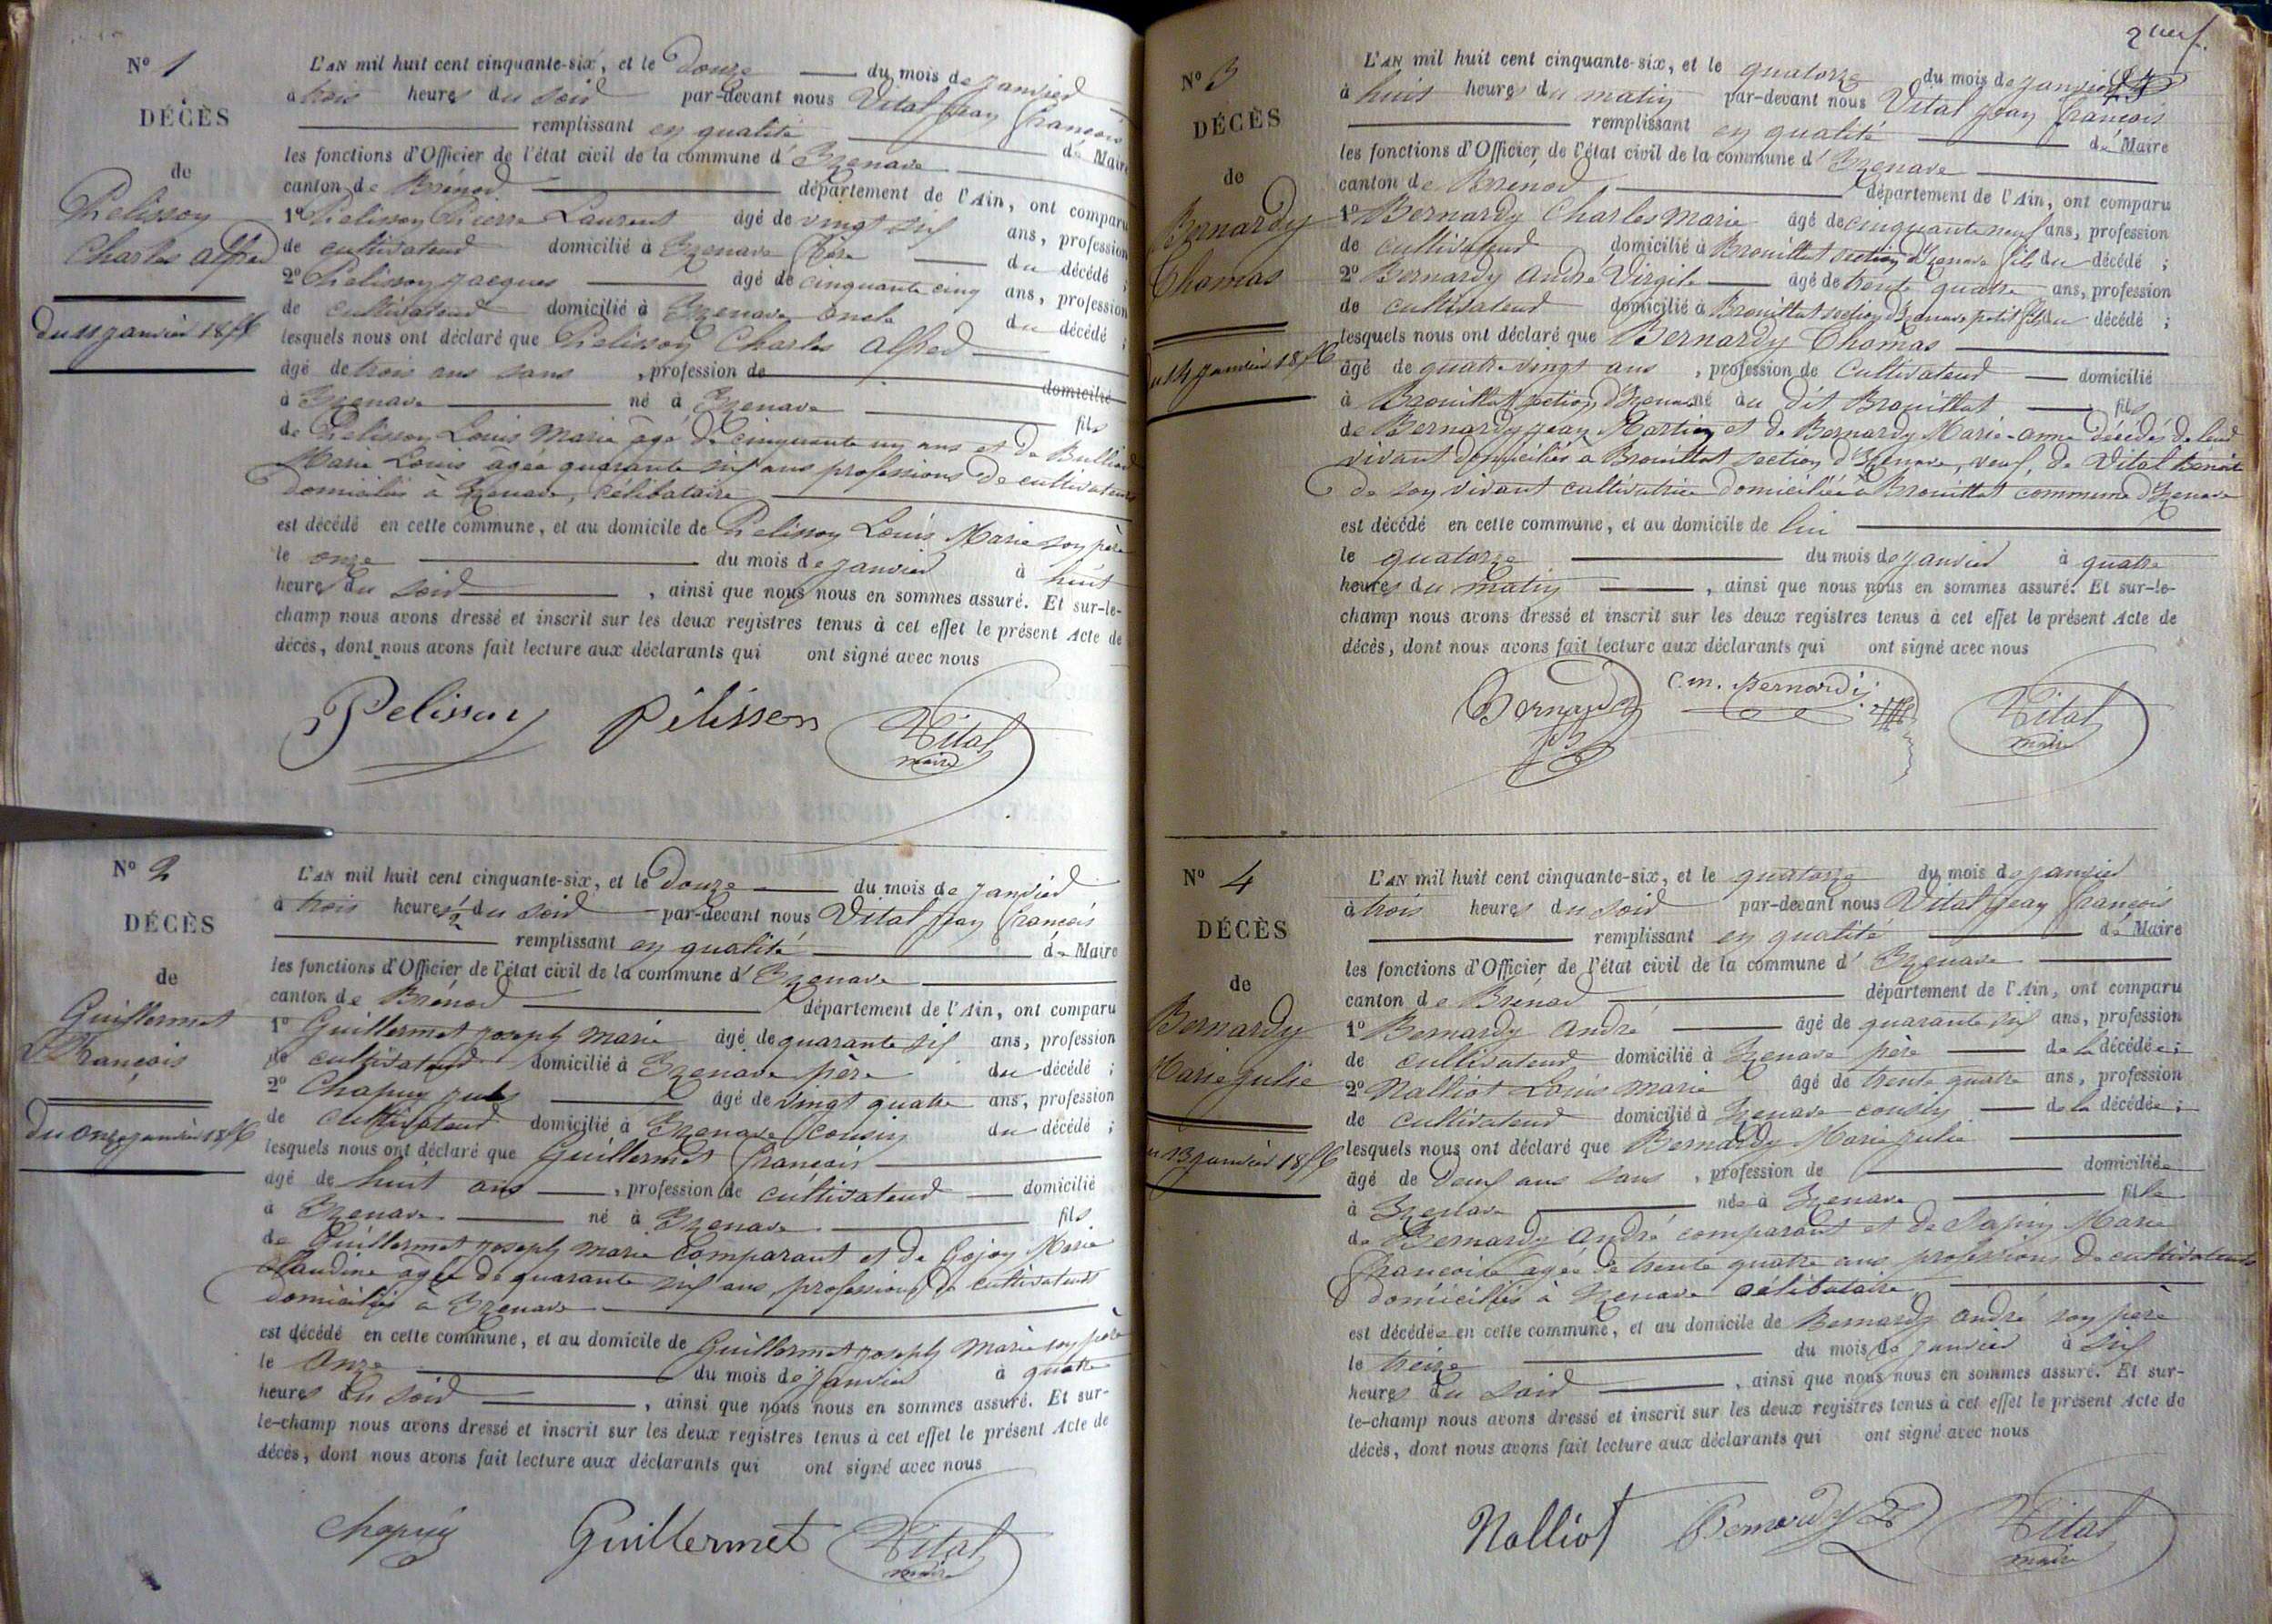 Nº 1
DÉCÈS
de
Pelisson
Charles Alfred
du 11 janvier 1856
L'AN mil huit cent cinquante-six, et le douze du mois de janvier
à trois heures du soir par-devant nous Vital Jean françois
remplissant en qualité de Maire
les fonctions d'Officier de l'état civil de la commune d'Izenave
canton de Brénod département de l'Ain, ont comparu
1º Pelisson Pierre Laurent âgé de vingt six ans, profession
de cultivateur domicilié à Izenave frère du décédé ;
2º Pelisson Jacques âgé de cinquante cinq ans, profession
de cultivateur domicilié à Izenave oncle du décédé ;
lesquels nous ont déclaré que Pelisson Charles Alfred
âgé de trois ans sans , profession de domicilié
à Izenave né à Izenave fils
de Pelisson Louis Marie âgé de cinquante un ans et de Bulliod
Marie Louis âgée quarante six ans professions de cultivateurs
domiciliés à Izenave, célibataire
est décédé en cette commune, et au domicile de Pelisson Louis Marie son père
le onze du mois de janvier à huit
heures du soir , ainsi que nous nous en sommes assuré. Et sur-le-
champ nous avons dressé et inscrit sur les deux registres tenus à cet effet le présent Acte de
décès, dont nous avons fait lecture aux déclarants qui ont signé avec nous
Pelisson Pélisson Vital
maire
Nº 2
DÉCÈS
de
Guillermet
François
du onze janvier 1856
L'AN mil huit cent cinquante-six, et le douze du mois de janvier
à trois heures ½ du soir par-devant nous Vital Jean françois
remplissant en qualité de Maire
les fonctions d'Officier de l'état civil de la commune d'Izenave
canton de Brénod département de l'Ain, ont comparu
1º Guillermet joseph marie âgé de quarante six ans, profession
de cultivateur domicilié à Izenave père du décédé ;
2º Chapuy jules âgé de vingt quatre ans, profession
de cultivateur domicilié à Izenave cousin du décédé ;
lesquels nous ont déclaré que Guillermet françois
âgé de huit ans , profession de cultivateur domicilié
à Izenave né à Izenave fils
de Guillermet joseph marie comparant et de Gojon Marie
Claudine âgée de quarante six ans, professions de cultivateurs
domiciliés à Izenave
est décédé en cette commune, et au domicile de Guillermet joseph Marie son père
le onze du mois de janvier à quatre
heures du soir , ainsi que nous nous en sommes assuré. Et sur-
le-champ nous avons dressé et inscrit sur les deux registres tenus à cet effet le présent Acte de
décès, dont nous avons fait lecture aux déclarants qui ont signé avec nous
Chapuy Guillermet Vital
maire
Nº 3
DÉCÈS
de
Bernardy
Thomas
du 14 janvier 1856
L'AN mil huit cent cinquante-six, et le quatorze du mois de janvier
à huit heures du matin par-devant nous Vital Jean françois
remplissant en qualité de Maire
les fonctions d'Officier de l'état civil de la commune d'Izenave
canton de Brénod département de l'Ain, ont comparu
1º Bernardy Charles Marie âgé de cinquante neuf ans, profession
de cultivateur domicilié à Brouillat section d'Izenave fils du décédé ;
2º Bernardy André Virgile âgé de trente quatre ans, profession
de cultivateur domicilié à Brouillat section d'Izenave petit fils du décédé ;
lesquels nous ont déclaré que Bernardy Thomas
âgé de quatre vingt ans , profession de Cultivateur domicilié
à Brouillat section d'Izenave né au dit Brouillat fils
de Bernardy jean Martin et de Bernardy Marie-anne décédés de leur
vivant domiciliés à Brouillat section d'Izenave, veuf, de Vital Benoite
de son vivant cultivatrice domiciliée à Brouillat commune d'Izenave
est décédé en cette commune, et au domicile de lui
le quatorze du mois de janvier à quatre
heures du matin , ainsi que nous nous en sommes assuré. Et sur-le-
champ nous avons dressé et inscrit sur les deux registres tenus à cet effet le présent Acte de
décès, dont nous avons fait lecture aux déclarants qui ont signé avec nous
Bernardy C. m. Bernardy Vital
maire
Nº 4
DÉCÈS
de
Bernardy
Marie Julie
du 13 janvier 1856
L'AN mil huit cent cinquante-six, et le quatorze du mois de janvier
à trois heures du soir par-devant nous Vital Jean françois
remplissant en qualité de Maire
les fonctions d'Officier de l'état civil de la commune d'Izenave
canton de Brénod département de l'Ain, ont comparu
1º Bernardy André âgé de quarante six ans, profession
de cultivateur domicilié à Izenave père de la décédée ;
2º Nalliot Louis Marie âgé de trente quatre ans, profession
de cultivateur domicilié à Izenave cousin de la décédée ;
lesquels nous ont déclaré que Bernardy Marie julie
âgé de deux ans sans , profession de domiciliée
à Izenave née à Izenave fille
de Bernardy André comparant et de Sapin Marie
françoise âgée de trente quatre ans, professions de cultivateurs
domiciliés à Izenave célibataire
est décédée en cette commune, et au domicile de Bernardy André son père
le treize du mois de janvier à six
heures du soir , ainsi que nous nous en sommes assuré. Et sur-
le-champ nous avons dressé et inscrit sur les deux registres tenus à cet effet le présent Acte de
décès, dont nous avons fait lecture aux déclarants qui ont signé avec nous
Nalliot Bernardy Vital
maire